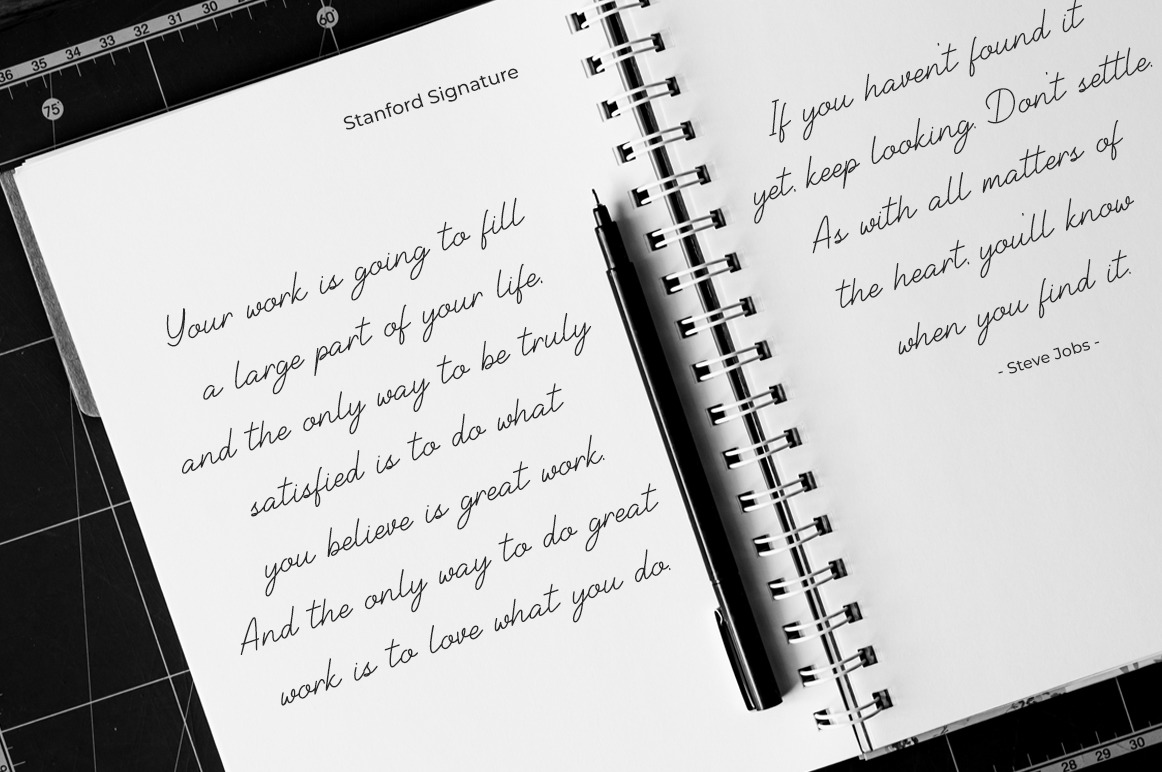 36 35 34 33 32 31 30
60°
75°
Stanford Signature
Your work is going to fill
a large part of your life.
and the only way to be truly
satisfied is to do what
you believe is great work.
And the only way to do great
work is to love what you do.
If you haven't found it
yet. keep looking. Don't settle.
As with all matters of
the heart. you'll know
when you find it.
- Steve Jobs -
28 29 30